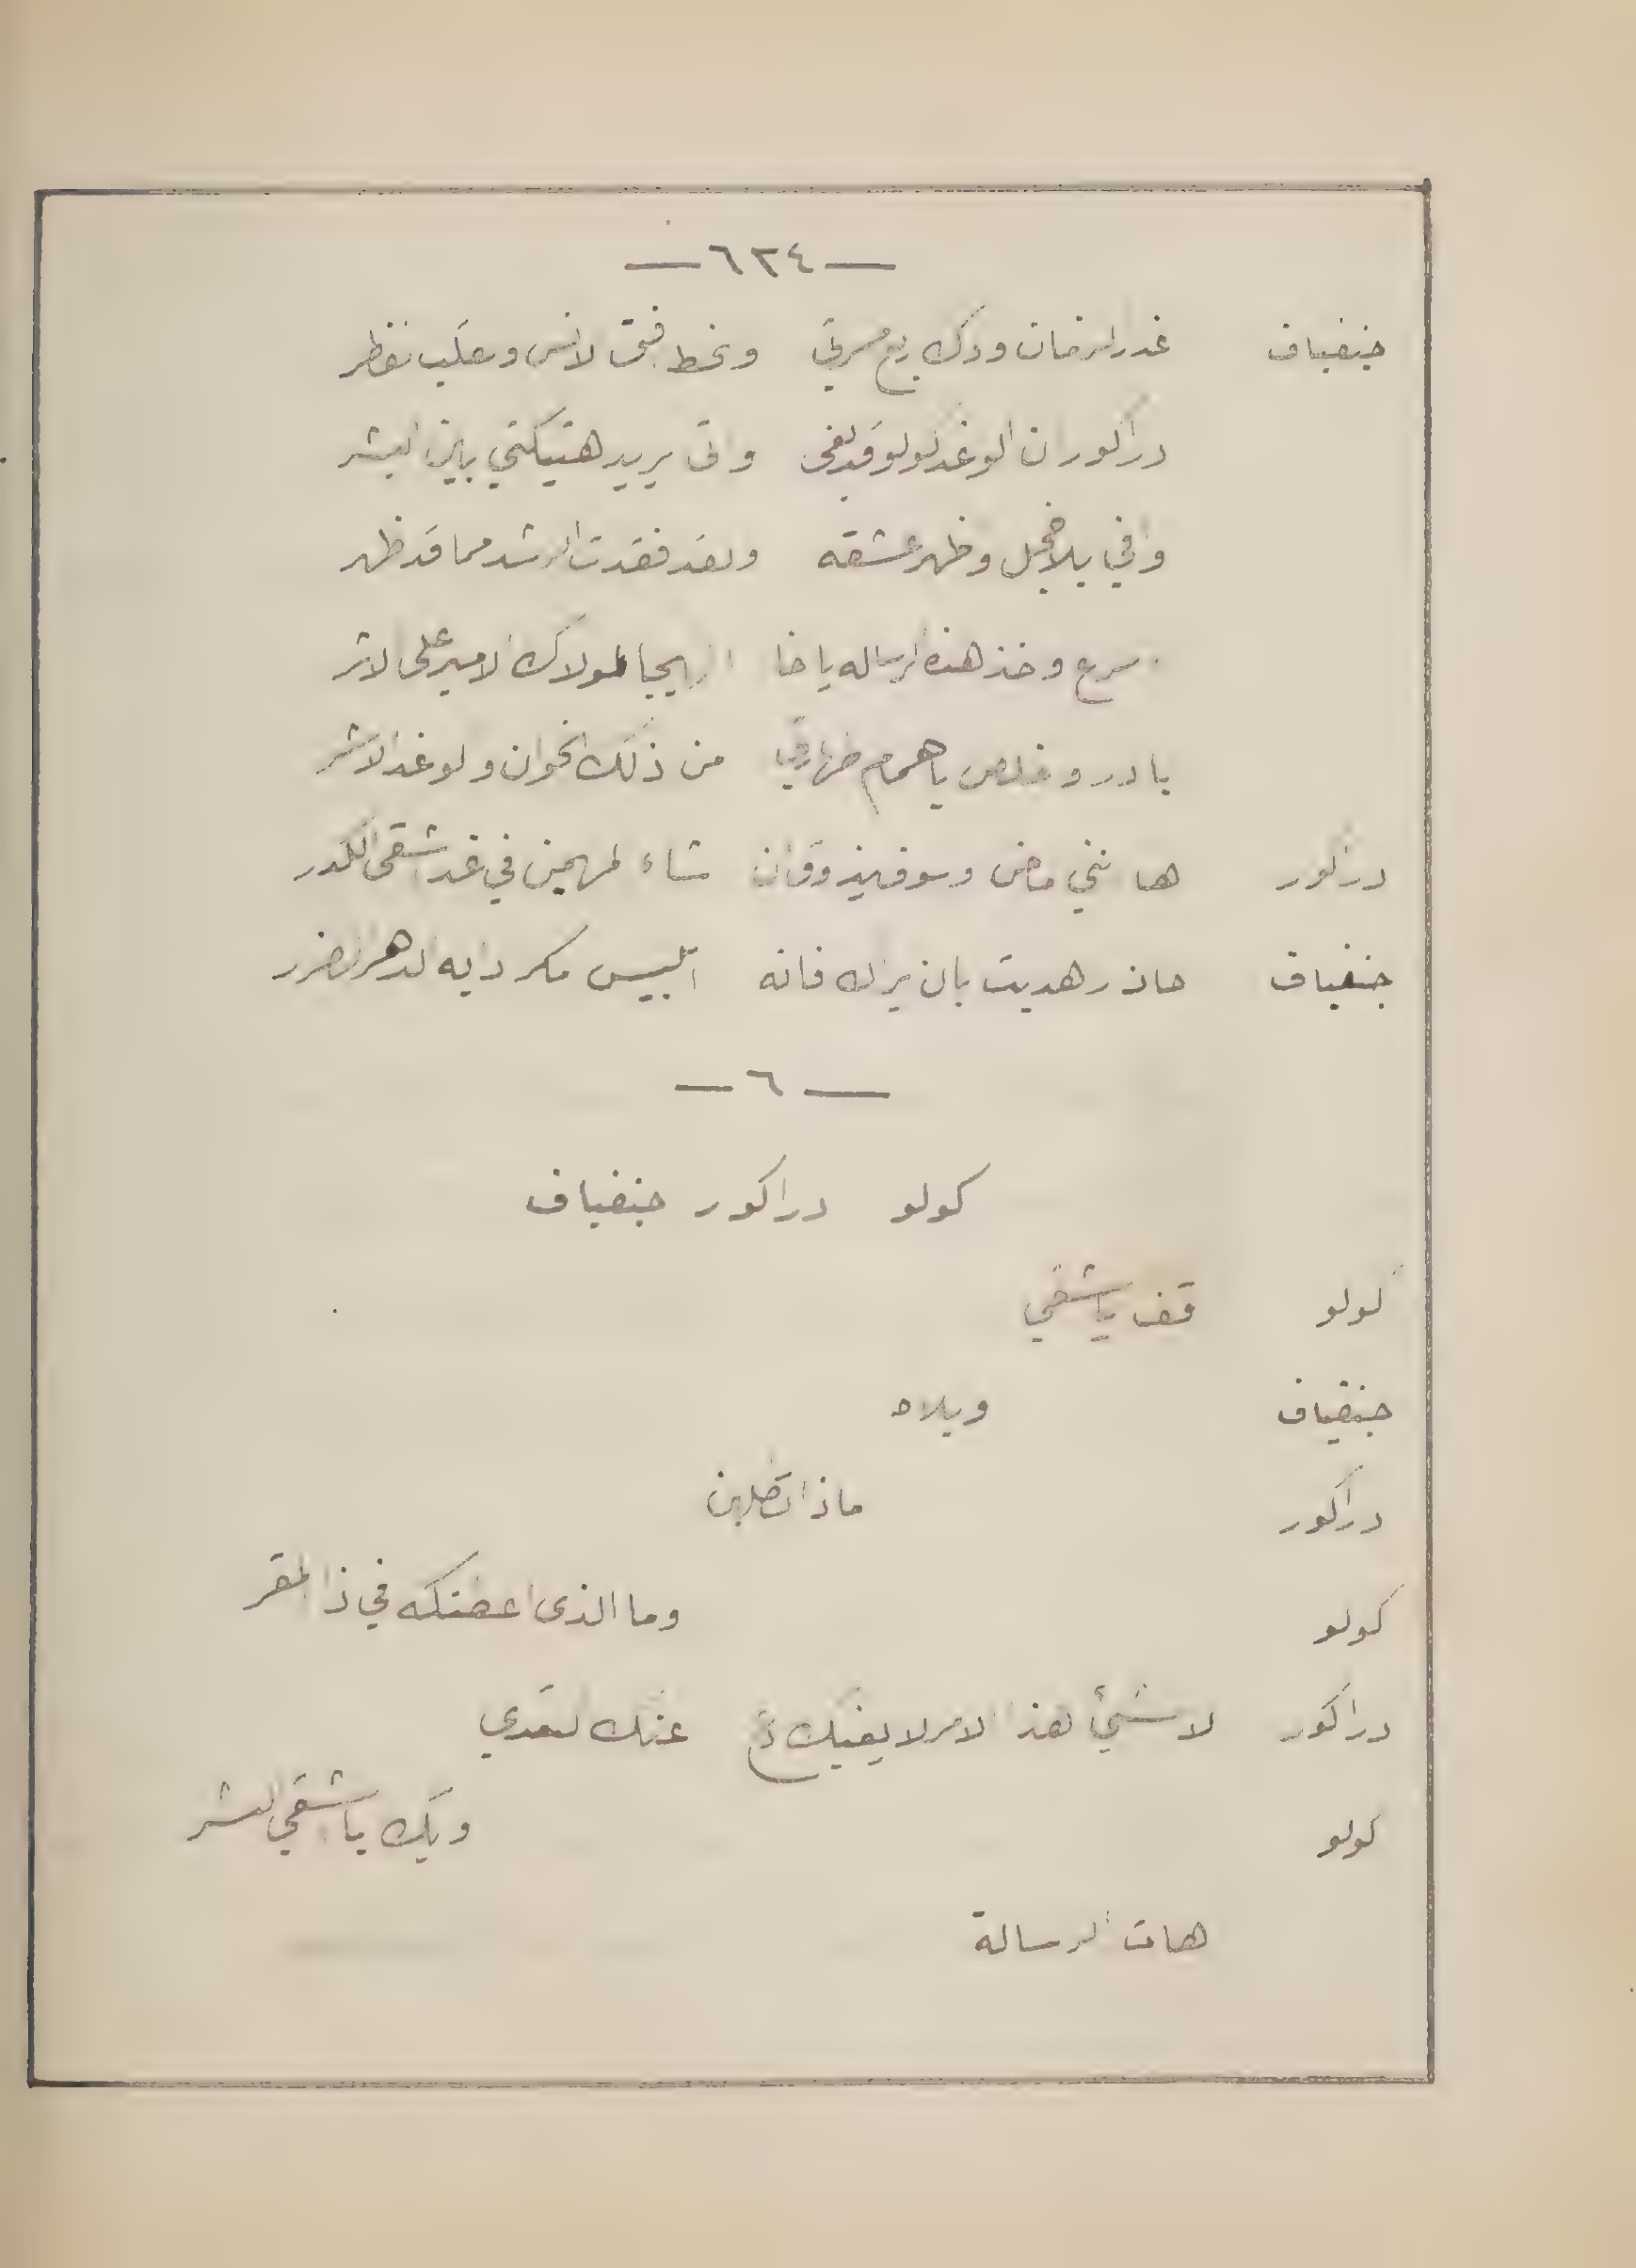 — ٦٣٤ —
جنفياف غدر الزمان ودك ربع مسرتي
دراكور ان الوغد كولو قد بغى واتى يريد هتيكتي بين البشر
وافى بلا خجل وظهر عشقه ولقد فقدت الرشد مما قد ظهر
اسرع وخذ هذه الرساله يا خا لمولاك الامير على الاثر
بادر وخلص يا همام طهارتي من ذلك الخوان والوغد الاشر
دراكور ها انني ماض وسوف يذوق ان شاء المهيمن في غد اشقى الكدر
جنفياف حاذر هديت بان يراك فانه ابليس مكر دابه الدهر الضرر
— ٦ —
كولو دراكور جنفياف
كولو قف يا شقي
جنفياف ويلاه
دراكور ماذا تطلبن
كولو وما الذى اعطتكه في ذا المقر
دراكور لا شيئ هذا الامر لا يعنيك دع عنك التعدي
كولو ويك يا شقي البشر
هات الرسالة